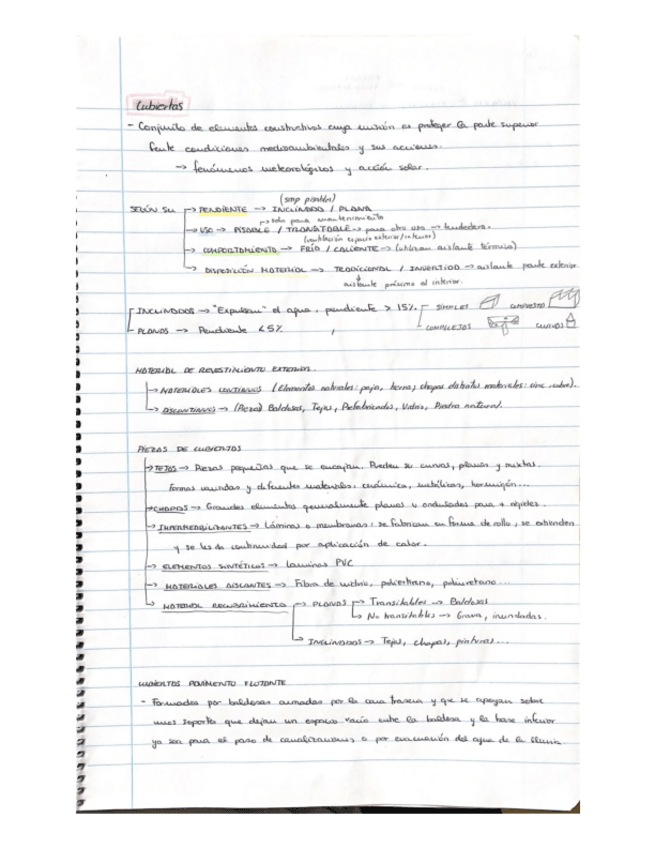 Cubiertas
- Conjunto de elementos constructivos cuya misión es proteger la parte superior
frente condiciones medioambientales y sus acciones.
→ fenómenos meteorológicos y acción solar.
(smp pendién)
SEGÚN SU → PENDIENTE → INCLINADA / PLANA
→ solo para mantenimiento
→ USO → PISABLE / TRANSITABLE → para otro uso → tendedero.
(ventilación espacio exterior/interior)
→ COMPORTAMIENTO → FRÍA / CALIENTE → (utilizan aislante térmico)
→ DISPOSICIÓN MATERIAL → TRADICIONAL / INVERTIDA → aislante parte exterior.
aislante próximo al interior.
INCLINADAS → "Expulsan" el agua, pendiente > 15%. SIMPLES COMPUESTA
PLANAS → Pendiente < 5%. COMPLEJAS CURVAS
MATERIAL DE REVESTIMIENTO EXTERIOR.
→ MATERIALES CONTINUOS (Elementos naturales: paja, tierra, chapas distintos materiales: zinc, cobre).
→ DISCONTINUOS → (Pieza) Baldosas, Tejas, Prefabricados, Vidrios, Piedra natural.
PIEZAS DE CUBIERTAS
→ TEJAS → Piezas pequeñas que se encajan. Pueden ser curvas, planas y mixtas.
Formas variadas y diferentes materiales: cerámica, metálicas, hormigón...
→ CHAPAS → Grandes elementos generalmente planas u onduladas para + rápidez.
→ IMPERMEABILIZANTES → Láminas o membranas: se fabrican en forma de rollo, se extienden
y se les da continuidad por aplicación de calor.
→ ELEMENTOS SINTÉTICOS → Laminas PVC
→ MATERIALES AISLANTES → Fibra de vidrio, poliestireno, poliuretano...
→ MATERIAL RECUBRIMIENTO → PLANAS → Transitables → Baldosas
→ No transitables → Grava, inundadas.
→ INCLINADAS → Tejas, chapas, pinturas...
CUBIERTAS PAVIMENTO FLOTANTE
- Formadas por baldosas armadas por la cara trasera y que se apoyan sobre
unos soportes que dejan un espacio vacío entre la baldosa y la base inferior
ya sea para el paso de canalizaciones o por evacuación del agua de la lluvia.